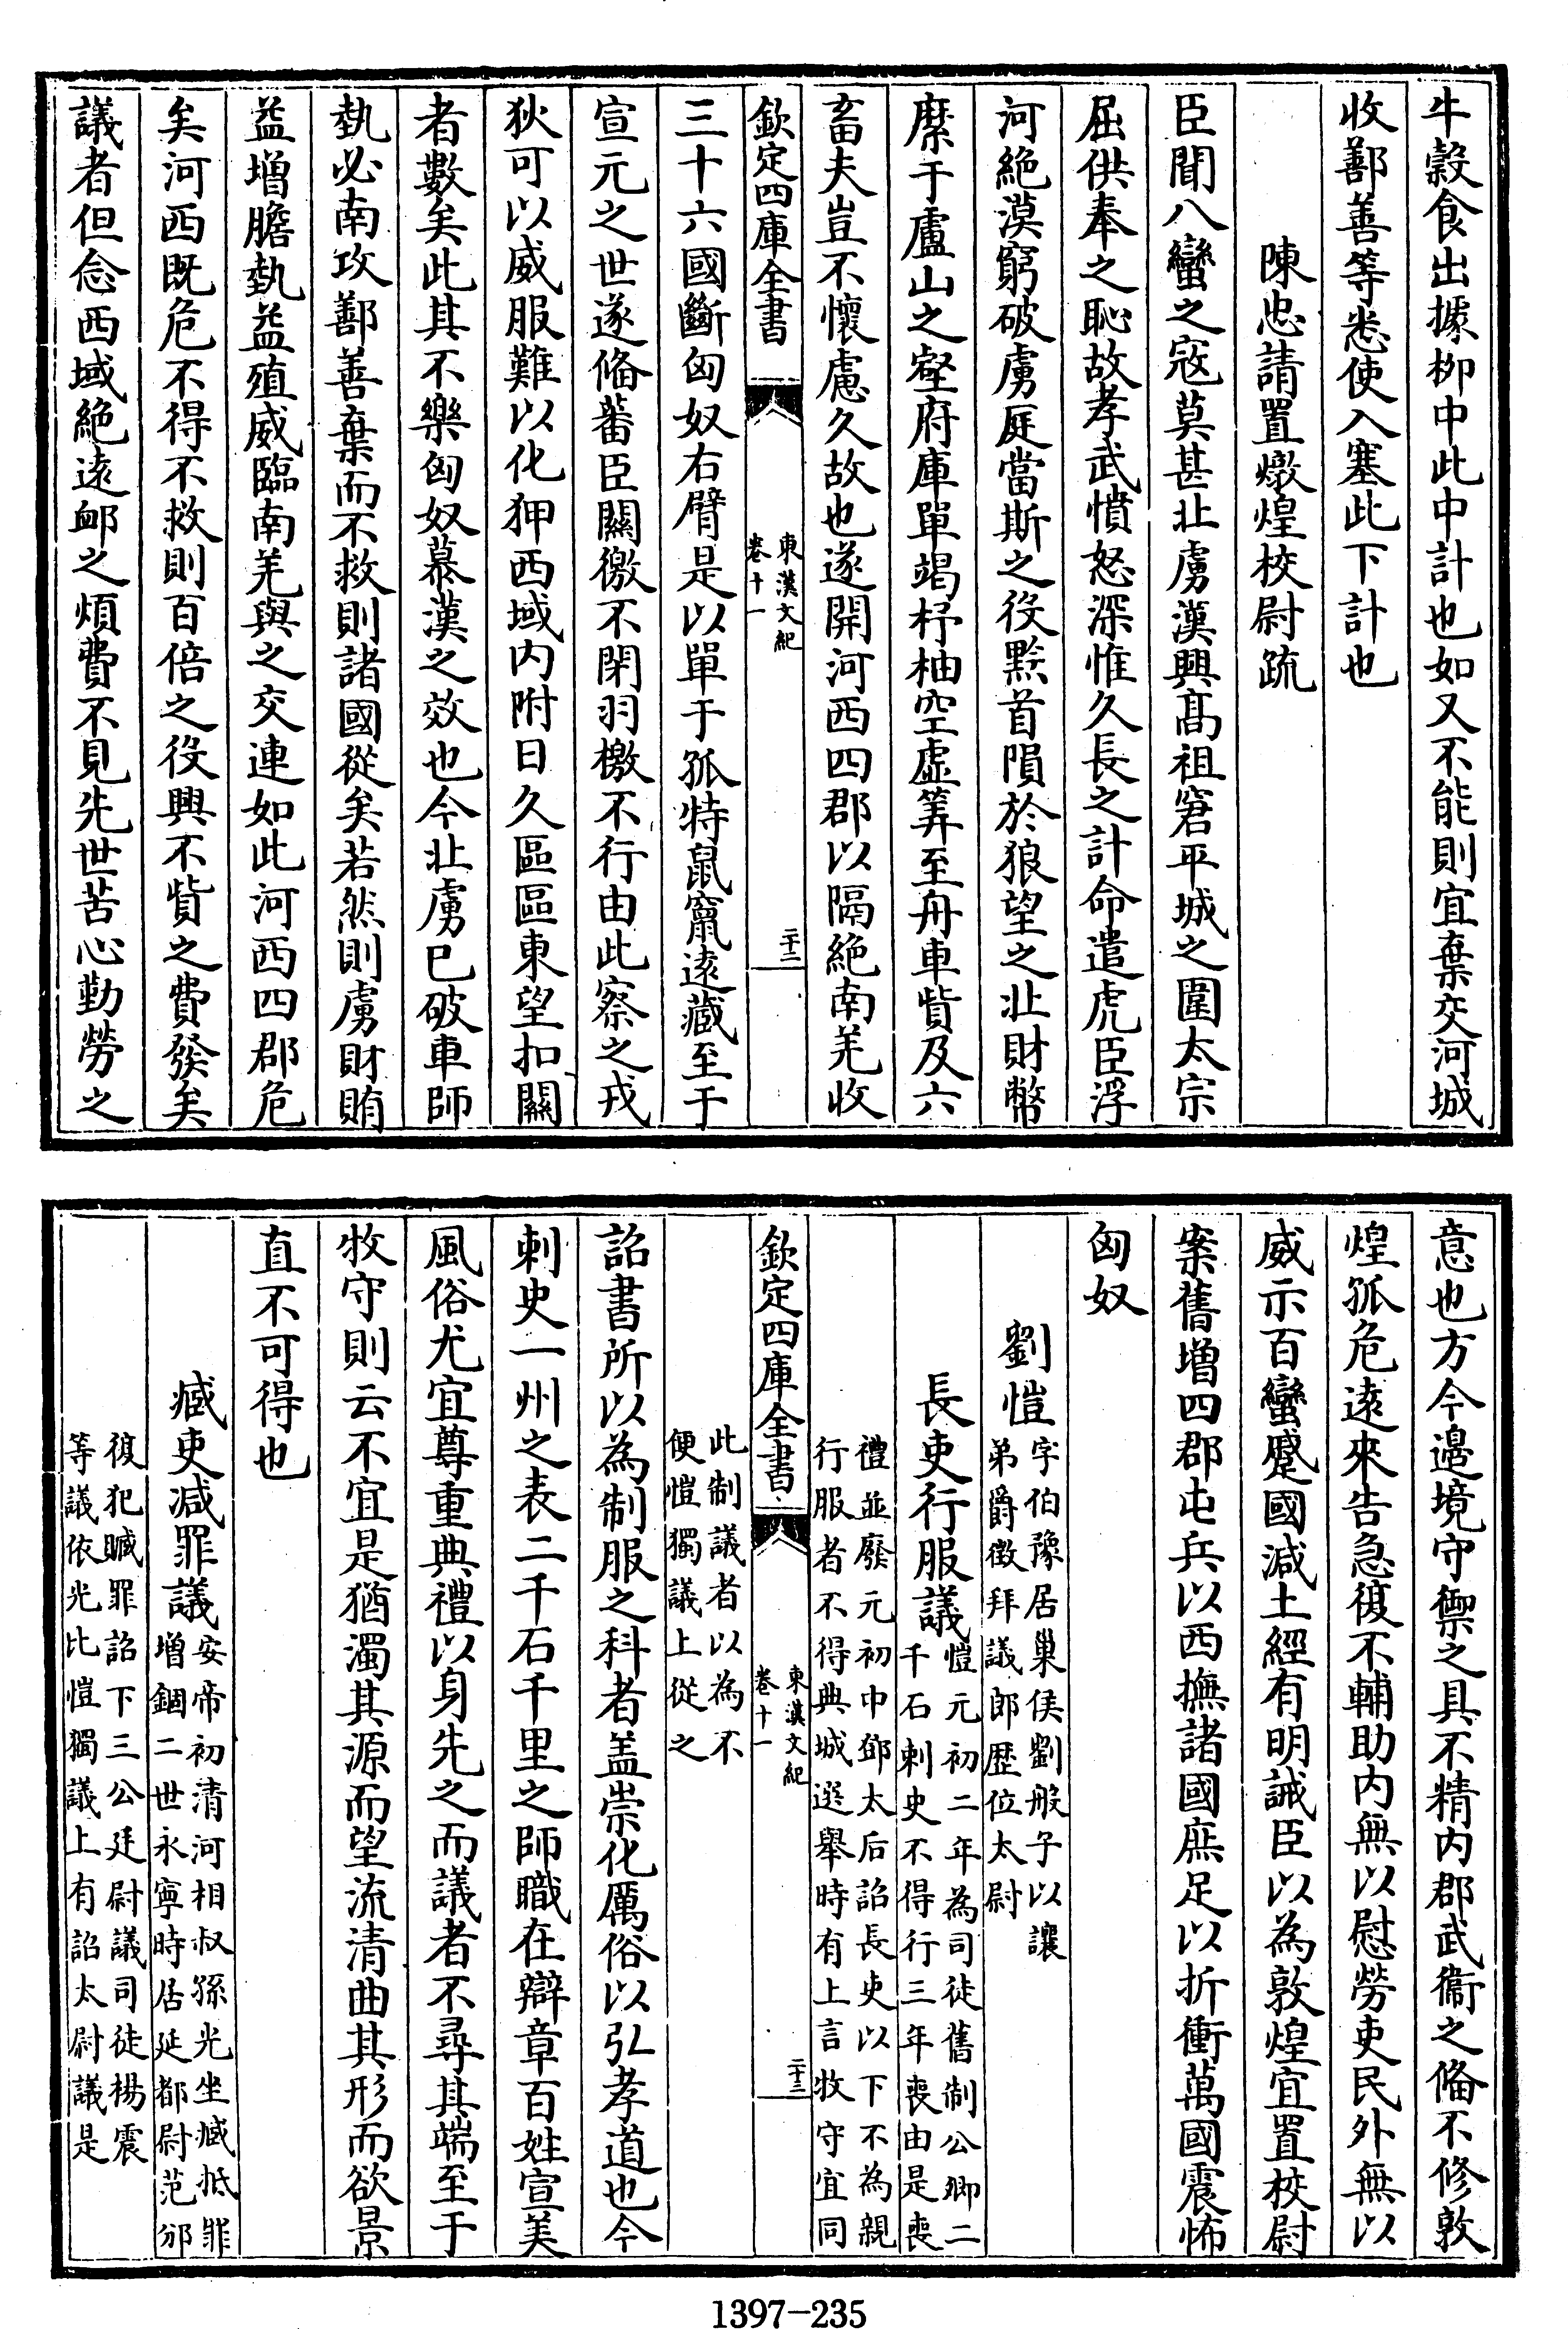 牛穀食出據栁中此中計也如又不能則宜棄交河城
收鄯善等悉使入塞此下計也
陳忠請置燉煌校尉疏
臣聞八蠻之寇莫甚北虜漢興髙祖窘平城之圍太宗
屈供奉之恥故孝武憤怒深惟久長之計命遣虎臣浮
河絶漠窮破虜庭當斯之役黔首隕於狼望之北財幣
縻于盧山之壑府庫單竭杼柚空虚筭至舟車貲及六
畜夫豈不懷慮久故也遂開河西四郡以隔絶南羌收
欽定四庫全書
東漢文紀
卷十一
二十二
三十六國斷匈奴右臂是以單于孤特鼠竄逺藏至于
宣元之世遂偹蕃臣關徼不閉羽檄不行由此察之戎
狄可以威服難以化狎西域内附日久區區東望扣關
者數矣此其不樂匈奴慕漢之效也今北虜已破車師
埶必南攻鄯善棄而不救則諸國從矣若然則虜財賄
益增膽埶益殖威臨南羌與之交連如此河西四郡危
矣河西既危不得不救則百倍之役興不貲之費發矣
議者但念西域絶逺卹之煩費不見先世苦心勤勞之
意也方今邊境守禦之具不精内郡武衞之偹不修敦
煌孤危逺來告急復不輔助内無以慰勞吏民外無以
威示百蠻蹙國減土經有明誡臣以為敦煌宜置校尉
案舊増四郡屯兵以西撫諸國庶足以折衝萬國震怖
匈奴
劉愷字伯豫居巢侯劉般子以讓
弟爵徴拜議郎歴位太尉
長吏行服議愷元初二年為司徒舊制公卿二
千石刺史不得行三年喪由是喪
禮並廢元初中鄧太后詔長吏以下不為親
行服者不得典城選舉時有上言牧守宜同
欽定四庫全書
東漢文紀
卷十一
二十三
此制議者以為不
便愷獨議上從之
詔書所以為制服之科者盖崇化厲俗以弘孝道也今
刺史一州之表二千石千里之師職在辯章百姓宣美
風俗尤宜尊重典禮以身先之而議者不尋其端至于
牧守則云不宜是猶濁其源而望流清曲其形而欲景
直不可得也
臧吏减罪議安帝初清河相叔孫光坐臧抵罪
増錮二世永寧時居延都尉范邠
復犯贓罪詔下三公廷尉議司徒楊震
等議依光比愷獨議上有詔太尉議是
1397-235